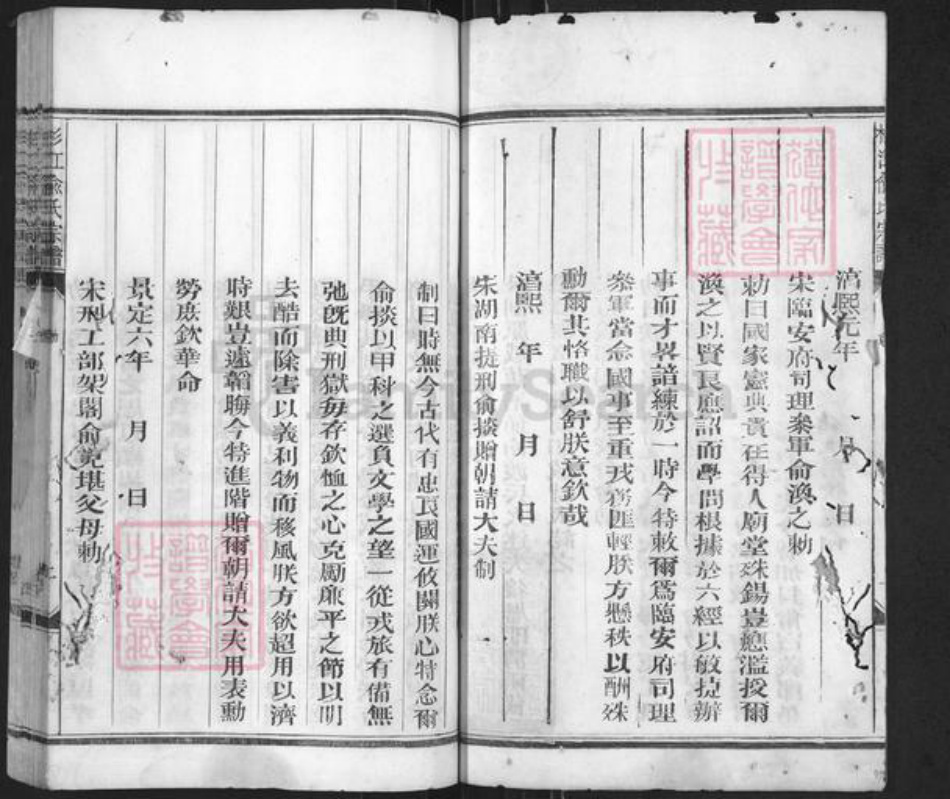 淳熙元年 月 日
宋臨安府司理叅軍俞渙之勅
勅曰國家憲典貴在得人廟堂殊錫豈應濫授爾
渙之以賢良應詔而學問根據於六經以敏捷辦
事而才畧諳練於一時今特敕爾爲臨安府司理
叅軍當念國事至重戎務匪輕朕方懸秩以酬殊
勳爾其恪職以舒朕意欽哉
淳熙 年 月 日
宋湖南提刑俞掞贈朝請大夫制
制曰時無今古代有忠良國運攸關朕心特念爾
俞掞以甲科之選負文學之望一從戎旅有備無
弛旣典刑獄每存欽恤之心克勵廉平之節以明
去酷而除害以義利物而移風朕方欲超用以濟
時艱豈遽韜晦今特進階贈爾朝請大夫用表勳
勞庶欽華命
景定六年 月 日
宋刑工部架閣俞 堪父母勅
俞氏宗譜
FamilySearch
譜學會
收藏